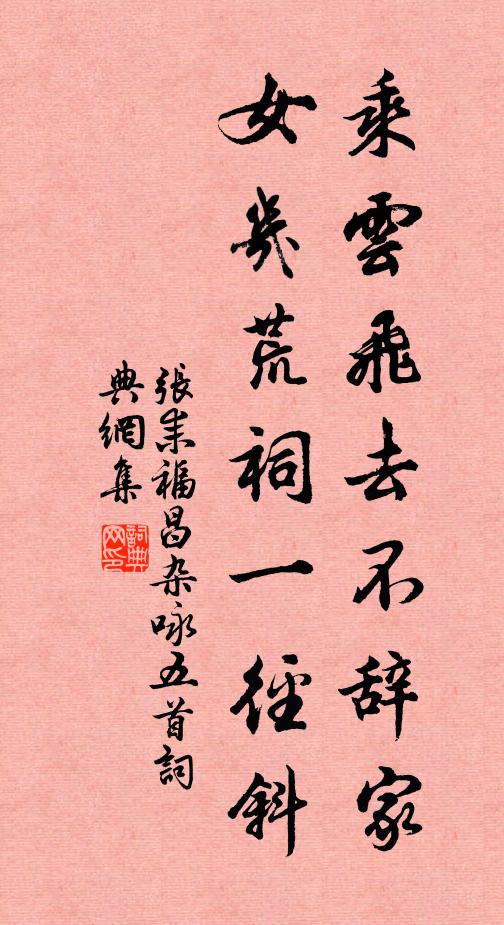 乘雲飛去不辞家
女几荒祠一徑斜
張耒福昌杂咏五首詞
典網集
詞典網印